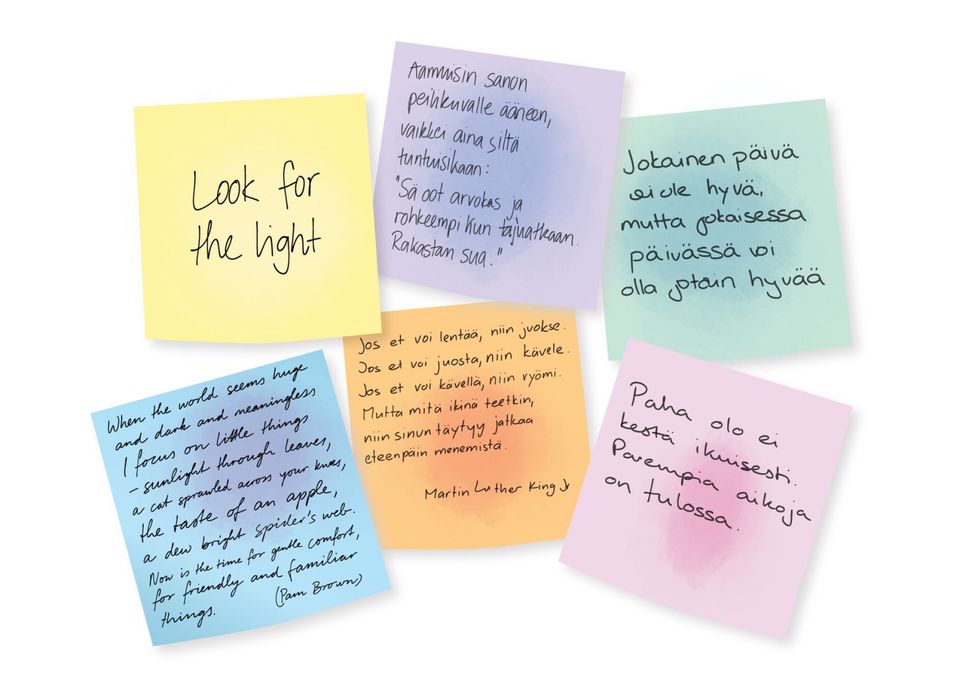 Look for
the light
Aamuisin sanon
peilikuvalle ääneen,
vaikkei aina siltä
tuntuisikaan:
"Sä oot arvokas ja
rohkeempi kun tajuatkaan.
Rakastan sua."
Jokainen päivä
ei ole hyvä,
mutta jokaisessa
päivässä voi
olla jotain hyvää
When the world seems huge
and dark and meaningless
I focus on little things
- sunlight through leaves,
a cat sprawled across your knees,
the taste of an apple,
a dew bright spider's web.
Now is the time for gentle comfort,
for friendly and familiar
things.
(Pam Brown)
Jos et voi lentää, niin juokse.
Jos et voi juosta, niin kävele.
Jos et voi kävellä, niin ryömi.
Mutta mitä ikinä teetkin,
niin sinun täytyy jatkaa
eteenpäin menemistä.
Martin Luther King Jr
Paha olo ei
kestä ikuisesti.
Parempia aikoja
on tulossa.